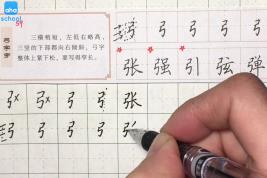 aha school
弓字旁
三横稍短，左低右略高，
三竖的下部都向右倾斜，弓字
整体上紧下松，要写得窄长。
弓 弓 弓 弓 弓
张 强 引 弦 弹
弓 × 弓 × 弓 弓 张
弓 弓 弓 弓